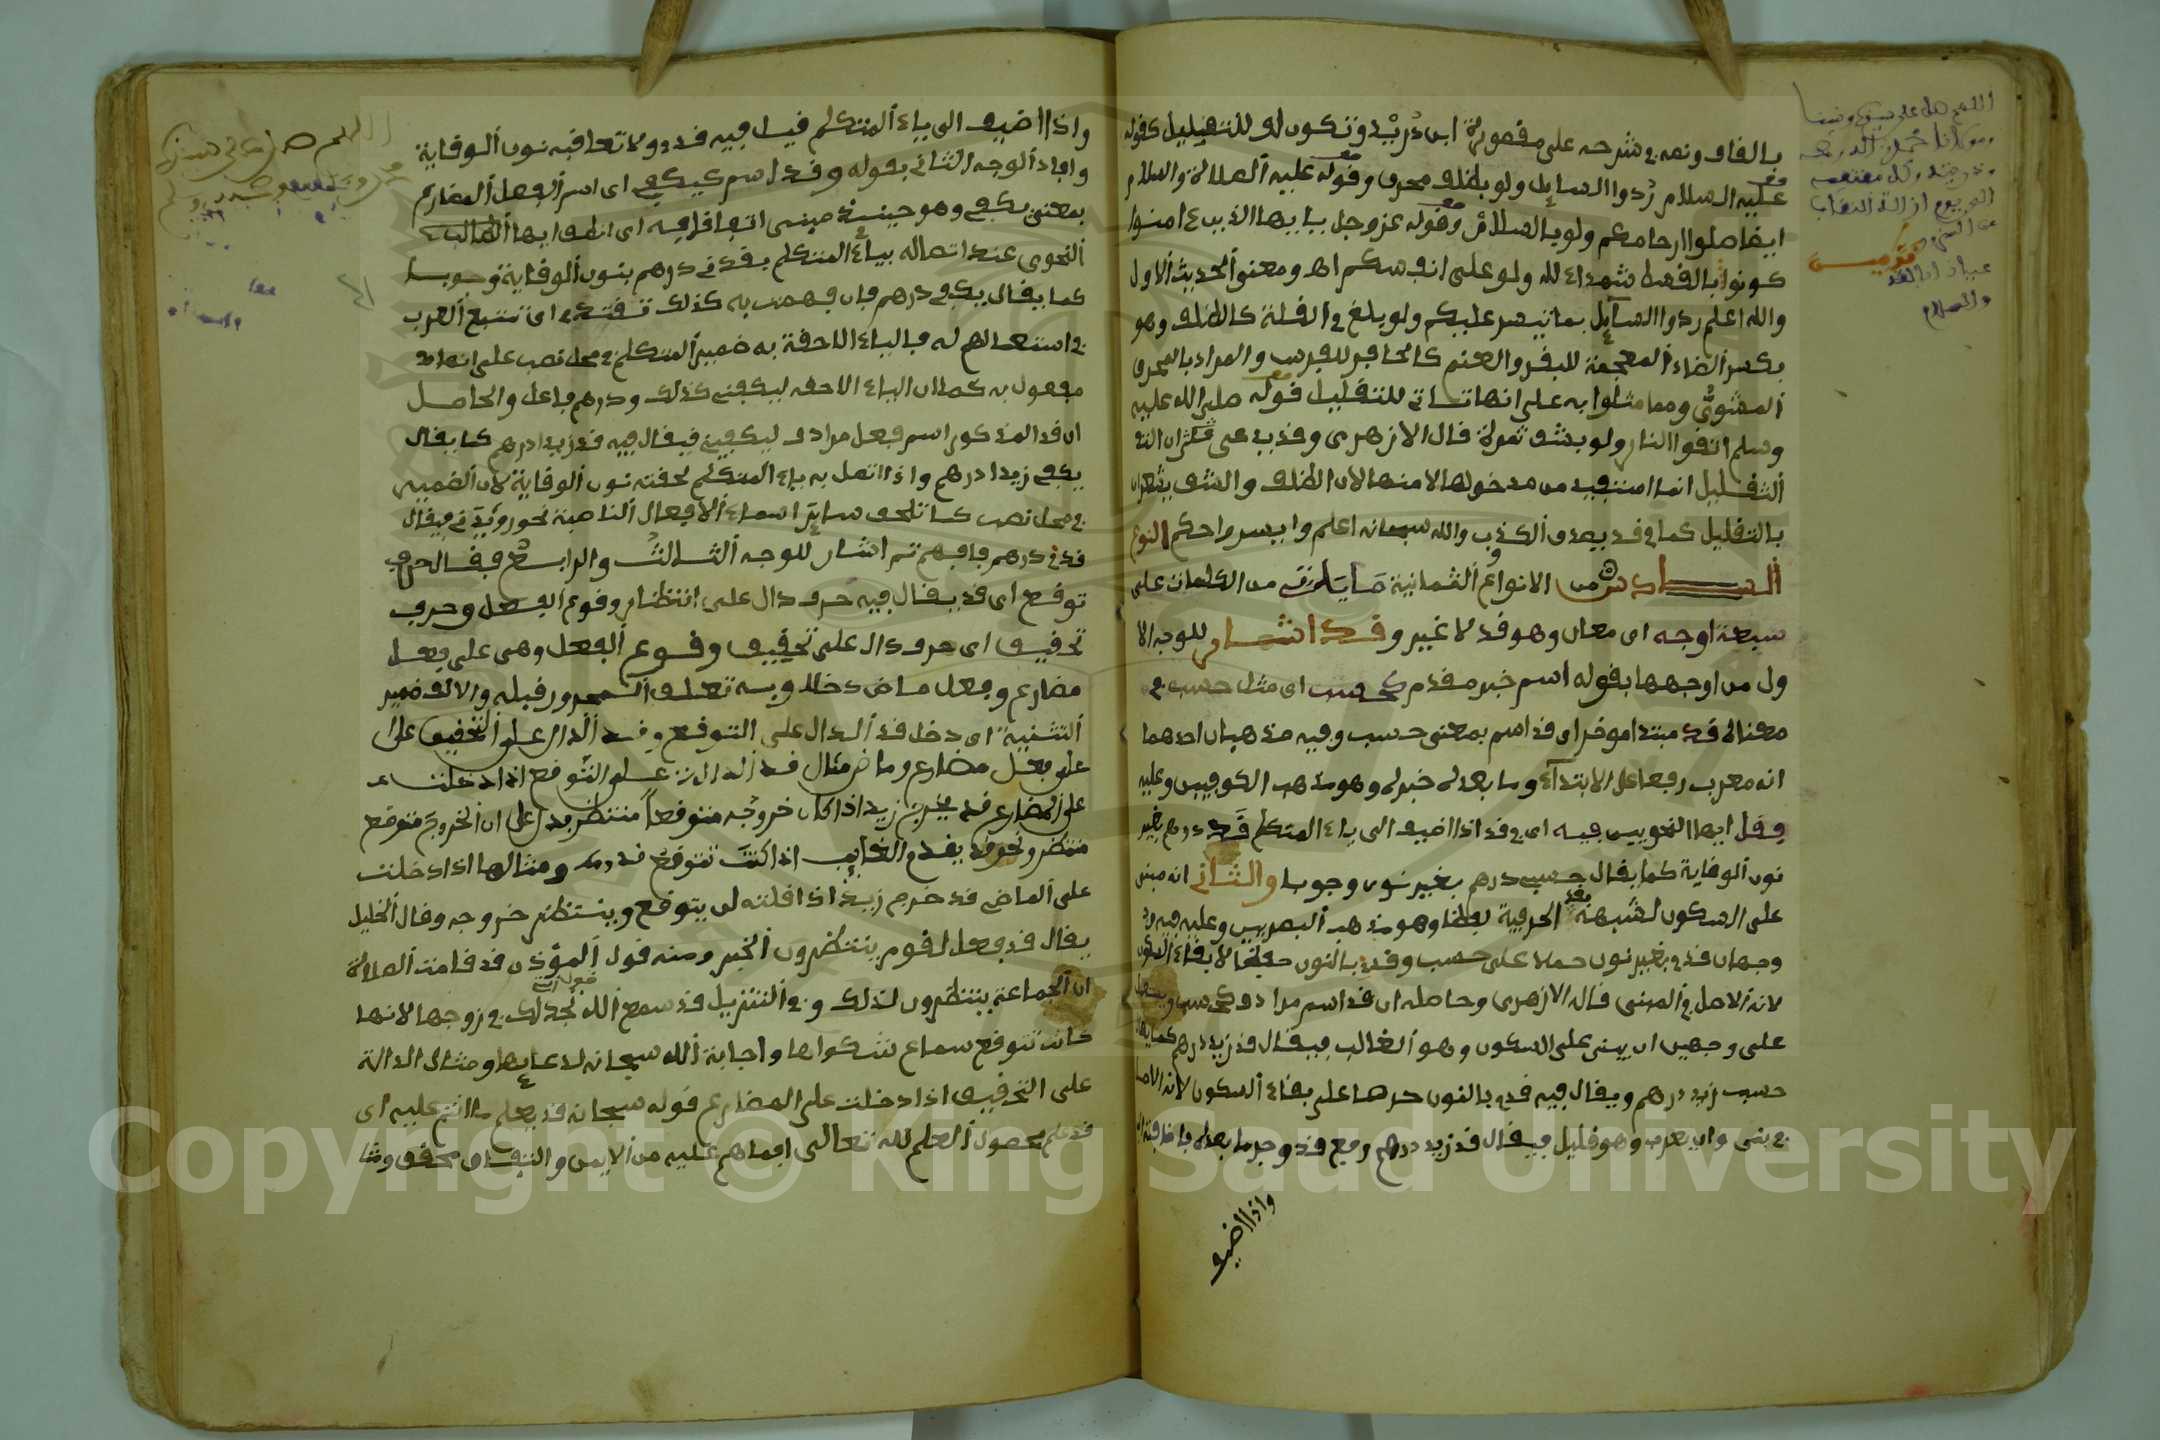 بالقاف ونصه في شرحه على مقصورة ابن دريد وتكون لو للتقليل كقوله
عليه السلام ردوا السايل ولو بظلف محرق وقوله عليه الصلاة والسلام
ايضا صلوا ارحامكم ولو بالسلام وقوله عز وجل يا يها الذين ءامنوا
كونوا بالقسط شهداء لله ولو على انفسكم اه ومعنى الحديث الاول
والله اعلم ردوا السآيل بما تيسر عليكم ولو بلغ في القلة كالظلف وهو
بكسر الظاء المعجمة للبقر والغنم كالحافر للفرس والمراد بالمحرق
المشوي ومما مثلوا به على انها تاتي للتقليل قوله صلى الله عليه
وسلم اتقوا النار ولو بشق تمرة قال الازهري وقد يدعى ان
التقليل انما استفيد من مدخولها لا منها لان الظلف والشق يشعران
بالتقليل كما في قد يصدق الكذوب والله سبحانه اعلم واحكم النوع
السادس من الانواع الثمانية ما ياتي من الكلمات على
سبعة اوجه اي معان وهو قد لا غير وقد اشار للوجه الا
ول من اوجهها بقوله اسم خبر مقدم كحسب اي مثل حسب في
معناه قد مبتدا موخر اي قد اسم بمعنى حسب وفيه مذهبان احدهما
انه معرب رفعا على الابتدآء وما بعده خبره وهو مذهب الكوفيين وعليه
وقل ايها النحويين فيه اي في قد اذا اضيف الى ياء المتكلم قد درهم بغير
نون الوقاية كما يقال حسبي درهم بغير نون وجوبا والثاني انه مبني
على السكون لشبهه الحرفية لفظا وهو مذهب البصريين وعليه فيه
وجهان قدي بغير نون حملا على حسب وقدني بالنون حفظا لابقاء السكون
لانه الاصل في المبني قاله الازهري وحاصله ان قد اسم مرادف كحسب
على وجهين ان يبنى على السكون وهو الغالب فيقال قد زيد درهم كما يقال
حسب زيد درهم ويقال فيه قدني بالنون حرصا على بقاء السكون لانه الاصل
فيبنى وان يعرب وهو قليل فيقال قد زيد درهم رفع قد وجر ما بعده باضافته
واذا اضيف
واذا اضيف الى ياء المتكلم قيل فيه قدي ولا تصاحبه نون الوقاية
وافاد الوجه الثاني بقوله وقد اسم كيكفي اي اسم الفعل المضارع
بمعنى يكفي وهو حينئذ مبني اتفاقا فيه ايها الطالب
النحوي عند اتصاله بياء المتكلم بقدني درهم بنون الوقاية وجوبا
كما يقال يكفي درهم فان فهمت به كذلك تقتدي اي تتبع العرب
في استعمالهم له فالياء اللاحقة به ضمير المتكلم في محل نصب على انها
مفعول به كما ان الياء اللاحقه ليكفيني كذلك ودرهم فاعل والحاصل
ان قد المذكور اسم فعل مرادف ليكفي فيقال فيه قد زيدا درهم كما يقال
يكفي زيدا درهم واذا اتصل به ياء المتكلم لحقته نون الوقاية لان الضمير
في محل نصب كما تلحق ساير اسماء الافعال الناصبة نحو رويدني فيقال
قدني درهم فافهم ثم اشار للوجه الثالث والرابع فقال حرف
توقع اي قد يقال فيه حرف دال على انتظار وقوع الفعل وحرف
تحقيق اي حرف دال على تحقيق وقوع الفعل وهي على فعل
مضارع وفعل ماض دخلا وبه تعلق المجرور قبله والالف ضمير
التثنية اي دخل قد الدال على التوقع وقد الدال على التحقيق على
على فعل مضارع وماض مثال قد الدالة على التوقع اذا دخلت
على المضارع قد يخرج زيد اذا كان خروجه متوقعا منتظرا فدل على ان الخروج متوقع
منتظر ونحو قد يقدم الغايب اذا كنت تتوقع قدومه ومثالها اذا دخلت
على الماضي قد خرج زيد اذا قلته لمن يتوقع وينتظر خروجه وقال الخليل
يقال قد فعل لقوم ينتظرون الخبر ومنه قول المؤذن قد قامت الصلاة
لان الجماعة ينتظرون لذلك وفي التنزيل قد سمع الله قول التي تجدلك في زوجها لانها
كانت تتوقع سماع شكواها واجابة الله سبحانه لدعايها ومثال الدالة
على التحقيق اذا دخلت على المضارع قوله سبحانه قد يعلم ما انتم عليه اي
قد علم حصول العلم لله تعالى فيما هم عليه من الايمن والنفاق محقق ومثا
Copyright © King Saud University